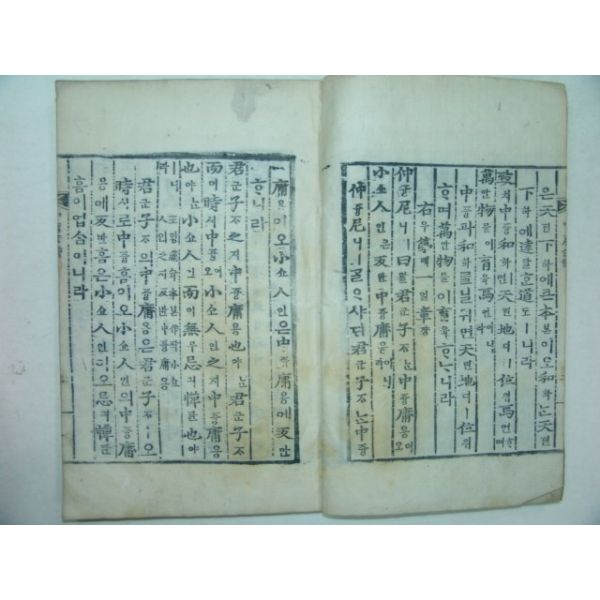 은天텬下하에큰本본이오和화ᄂᆞᆫ天텬
下하에達달道도ㅣ니라
致치中듕和화ㅣ면天텬地디ㅣ位위焉언ᄒᆞ며
萬만物믈이育육焉언
中듕과和화를닐위면天텬地디ㅣ位위
ᄒᆞ며萬만物믈이育육ᄒᆞᄂᆞ니라
右우ᄂᆞᆫ第뎨一일章쟝
仲듕尼니ㅣ曰왈君군子ᄌᆞᄂᆞᆫ中듕庸용이오
小쇼人인은反반中듕庸용이니라
仲듕尼니ㅣᄀᆞᆯᄋᆞ샤ᄃᆡ君군子ᄌᆞᄂᆞᆫ中듕
庸용이오小쇼人인은中듕庸용에反반
ᄒᆞ니라
君군子ᄌᆞ之지中듕庸용也야ᄂᆞᆫ君군子ᄌᆞ
而이時시中듕이오小쇼人인之지中듕庸용
也야ᄂᆞᆫ小쇼人인而이無무忌긔憚탄也야
君군子ᄌᆞ의中듕庸용은君군子ᄌᆞㅣ오
時시로中듕홈이오小쇼人인의中듕庸
용에反반홈은小쇼人인이오忌긔憚탄
홈이업슴이니라